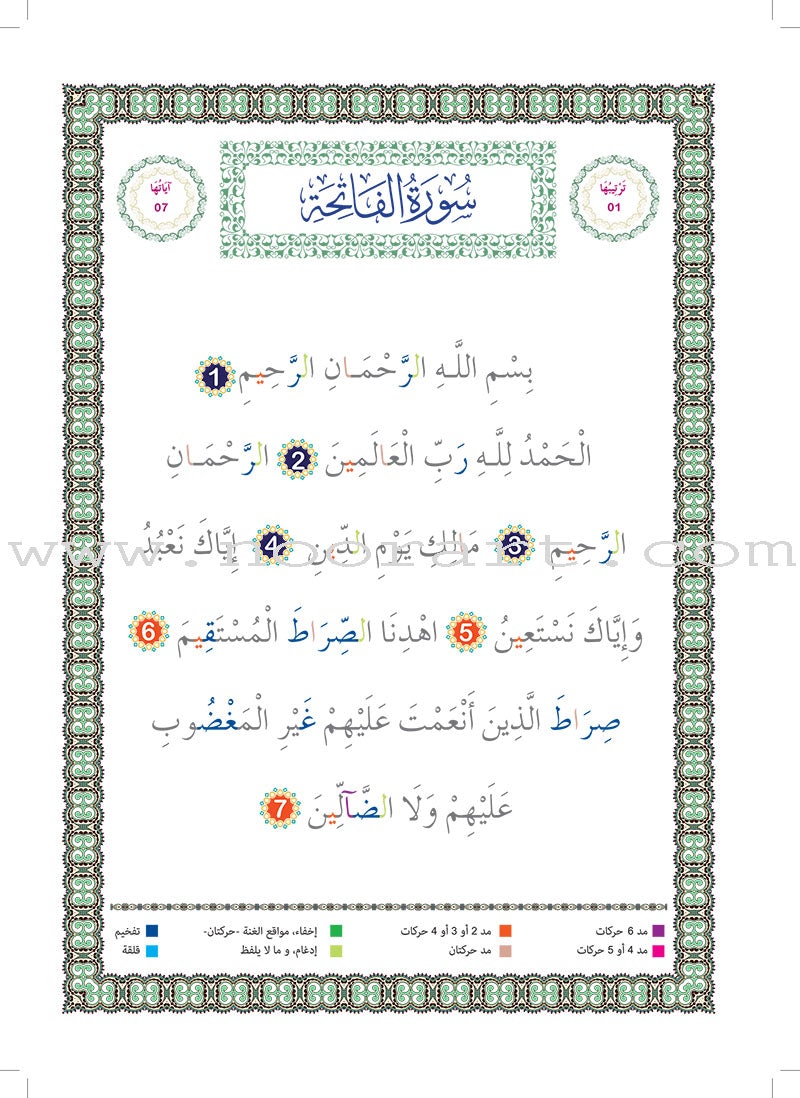 تَرْتِيبُهَا
01
سُورَةُ الفَاتِحَة
آيَاتُهَا
07
بِسْمِ اللَّـهِ الرَّحْمَـانِ الرَّحِيمِ 1
الْحَمْدُ لِلَّـهِ رَبِّ الْعَالَمِينَ 2 الرَّحْمَـانِ
الرَّحِيمِ 3 مَالِكِ يَوْمِ الدِّينِ 4 إِيَّاكَ نَعْبُدُ
www.noorart.com
وَإِيَّاكَ نَسْتَعِينُ 5 اهْدِنَا الصِّرَاطَ الْمُسْتَقِيمَ 6
صِرَاطَ الَّذِينَ أَنْعَمْتَ عَلَيْهِمْ غَيْرِ الْمَغْضُوبِ
عَلَيْهِمْ وَلَا الضَّآلِّينَ 7
مد 6 حركات مد 2 أو 3 أو 4 حركات إخفاء، مواقع الغنة -حركتان- تفخيم
مد 4 أو 5 حركات مد حركتان إدغام، و ما لا يلفظ قلقة